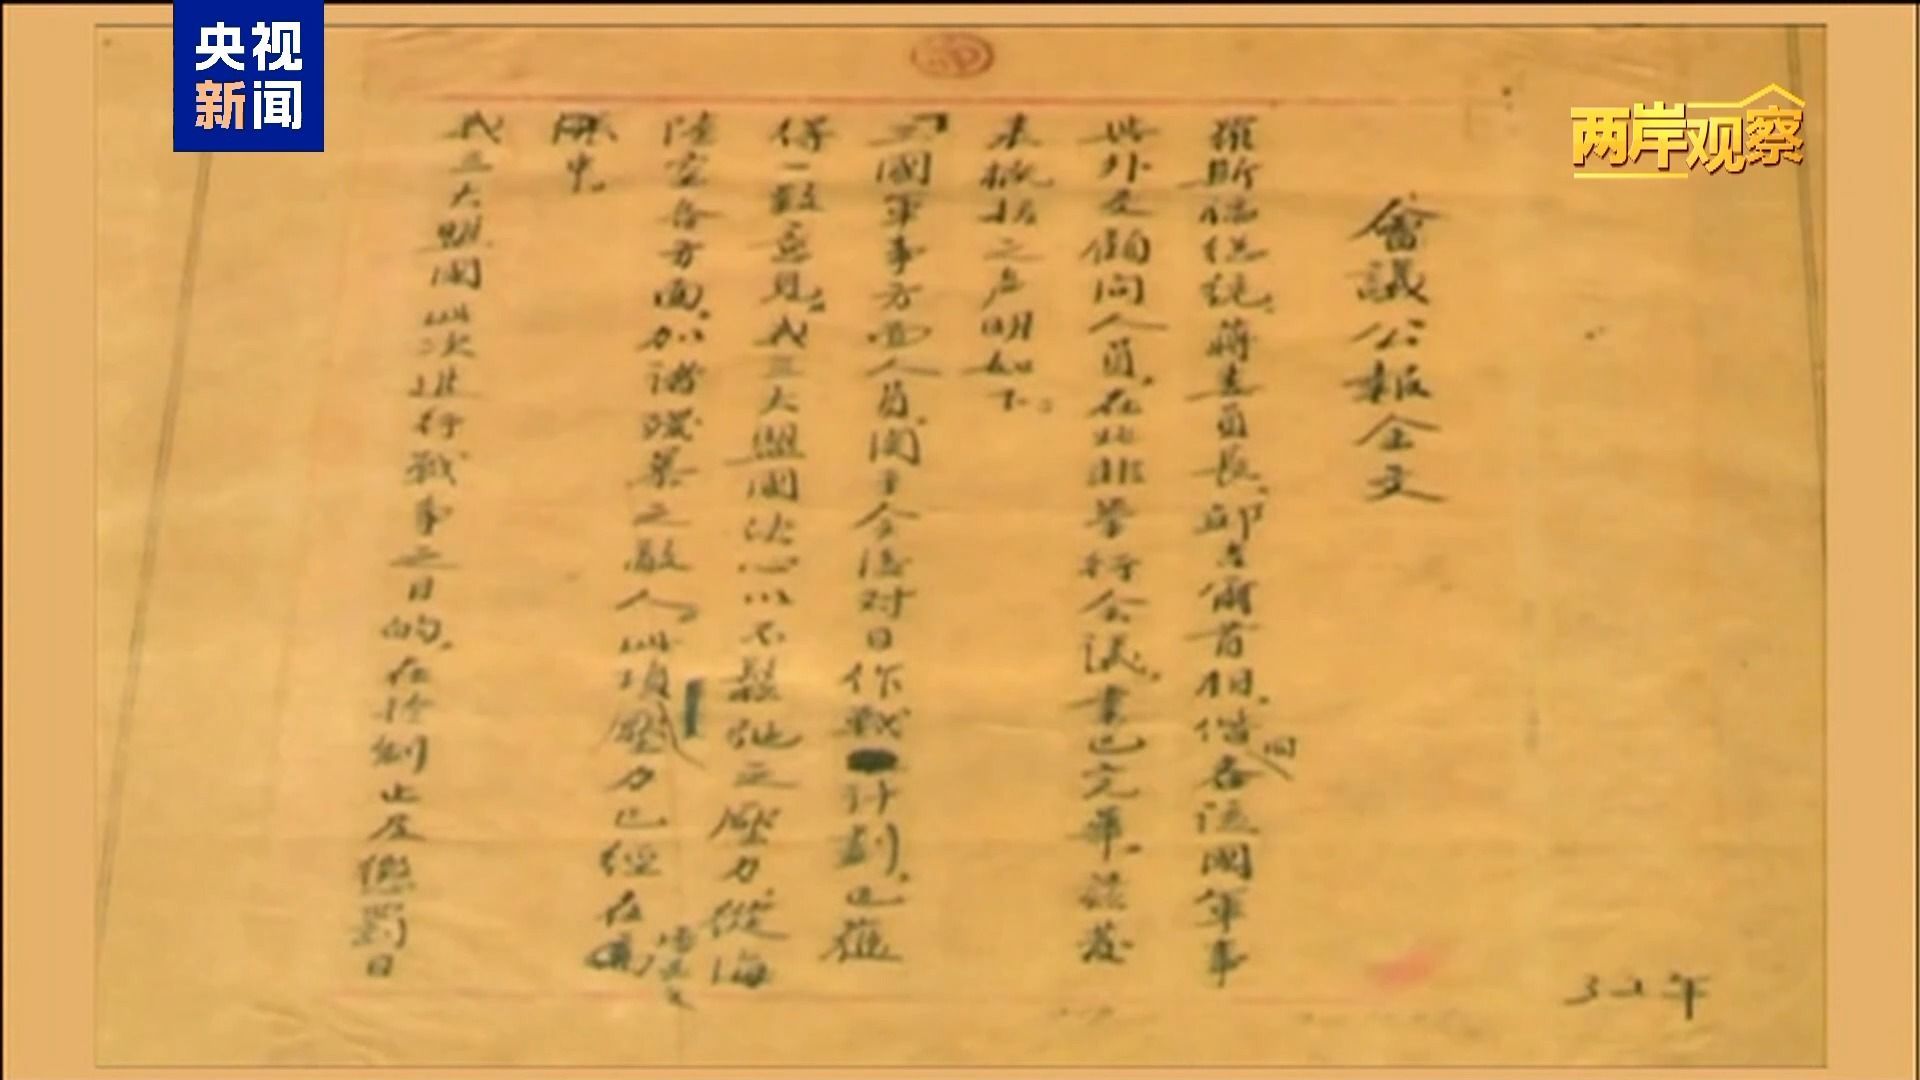 央视
新闻
两岸观察
會議公報全文
羅斯福總統、蔣委員長、邱吉爾首相、偕同各該國軍事
與外交顧問人員、在北非舉行會議、業已完畢、茲發
表概括之声明如下。
三國軍事方面人員、関于今後对日作戰計劃、已獲
得一致意見、我三大盟國決心以不鬆弛之壓力、從海
陸空各方面、加諸殘暴之敵人、此項壓力已經在
中。
我三大盟國此次進行戰事之目的、在於制止及懲罰日
32年